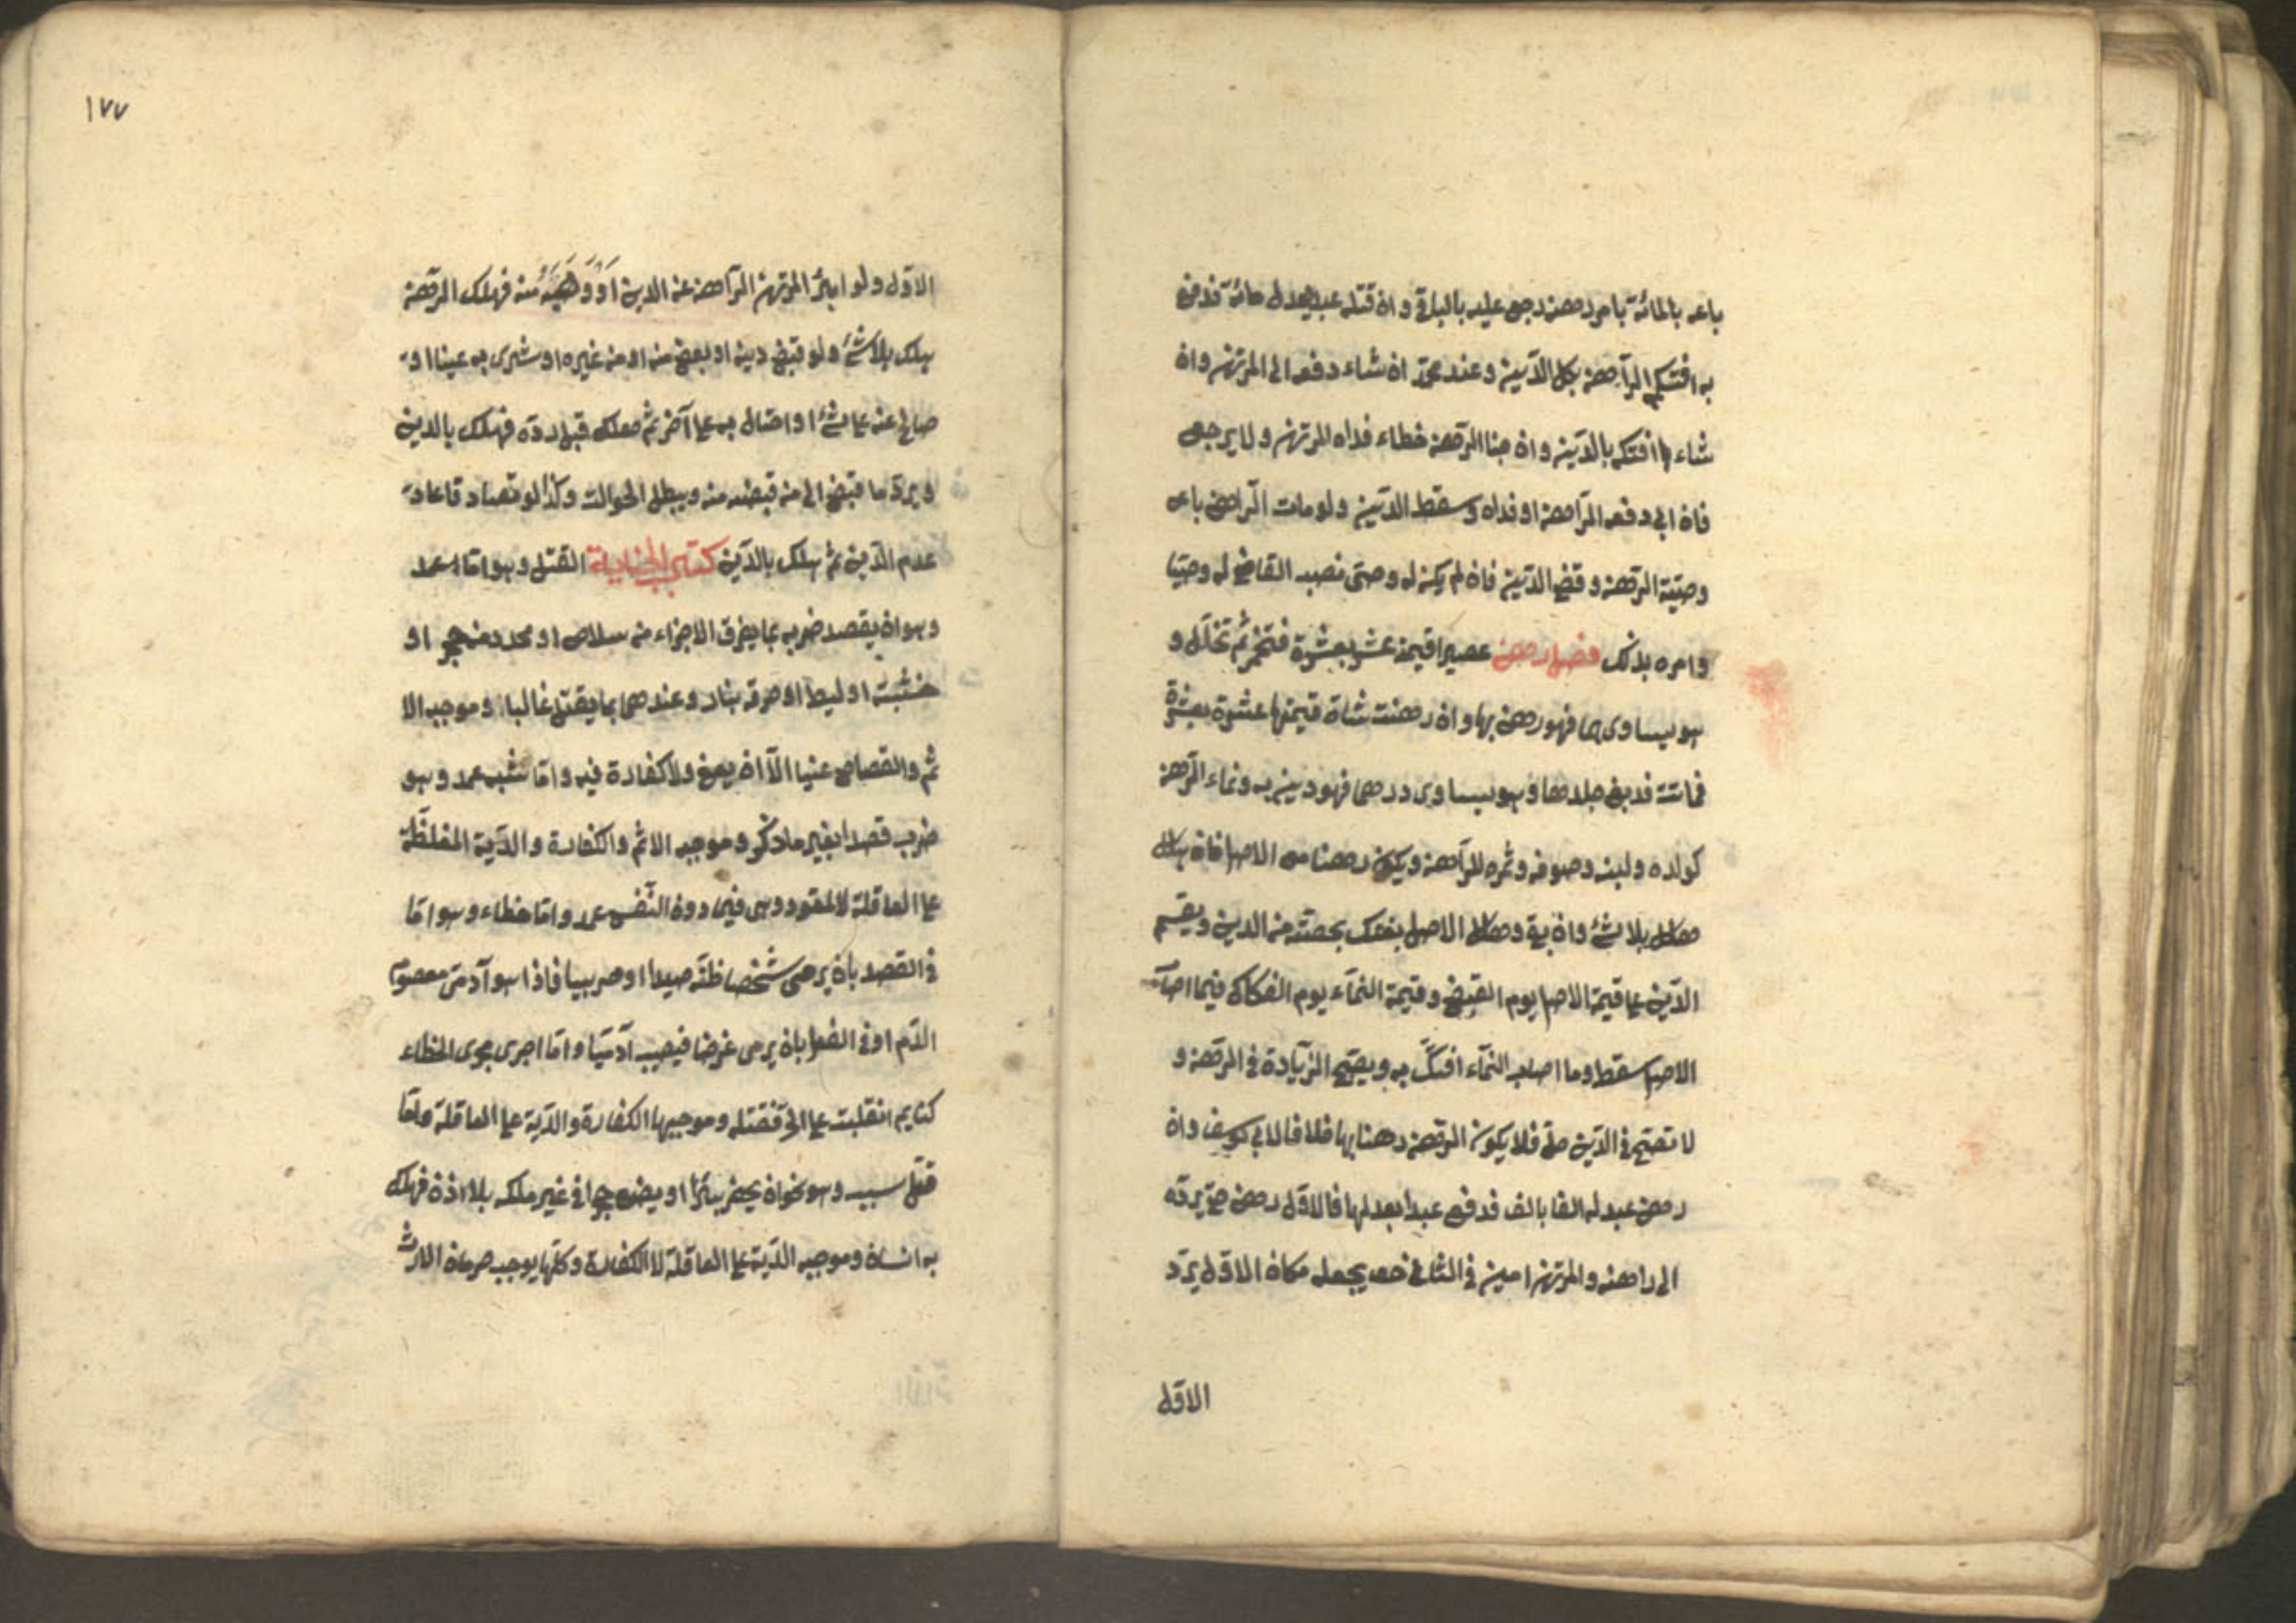 باعه بالمائة بامر رهنه رجع عليه بالباقي وان قتله عبد يعدل مائة فدفع
به افتكه الراهن بكل الدين وعند محمد ان شاء دفعه الى المرتهن وان
شاء افتكه بالدين وان جنا الرهن خطاء فداه المرتهن ولا يرجع
فان ابى دفعه الراهن او فداه وسقط الدين ولو مات الراهن باع
وصيّه الرهن وقضى الدين فان لم يكن له وصىّ نصب القاضى له وصيّا
وامره بذلك فصل رهن عصيرا قيمته عشر بعشرة فتخمّر ثم تخلّل و
هو يساوى بها فهو رهن بها وان رهنت شاة قيمتها عشرة بعشرة
فماتت فدبغ جلدها وهو يساوى درهما فهو رهن به ونماء الرهن
كولده ولبنه وصوفه وثمره للراهن ويكون رهنا مع الاصل فان هلك
هلك بلا شئ وان بقى وهلك الاصل يفتك بحصته من الدين ويقسم
الدّين على قيمة الاصل يوم القبض وقيمة النماء يوم الفكاك فيما اصاب
الاصل سقط وما اصاب النماء افتكّ به ويصحّ الزيادة فى الرهن و
لا تصحّ فى الدين حتى فلا يكون الرهن رهنا بها خلافا لابى يوسف وان
رهن عبدا له الفا بالف فدفع عبدا بعدلها فالاول رهن حتى يردّه
الى راهنه والمرتهن امين فى الثانى حتى يجعله مكان الاول يرد
الاول
١٧٧
الاوّل ولو ابرئ المرتهن الراهن عن الدين اَوْ وَهَبَهُ منه فهلك الرهن
يهلك بلا شئ ولو قبض دينه او بعضه منه او من غيره او شرى به عينا او
صالح عنه على شئ او احتال به على آخر ثم هلك قبل ردّه فهلك بالدين
ويردّ ما قبض الى من قبضه منه ويبطل الحوالة وكذا لو تصادقا على
عدم الدين ثم يهلك بالدّين كتاب الجناية القتل وهو اما عمد
وهو ان يقصد ضربه بما يفرق الاجزاء من سلاح او محدد من حجر او
خشبة او ليط او حرقه بنار وعندهما بما يقتل غالبا وموجبه الا
ثم والقصاص عنيا الّا ان يعفى ولا كفارة فيه واما شبه عمد وهو
ضرب قصدا بغير ما ذكر وموجبه الاثم والكفارة والدّية المغلّظة
على العاقلة لا القود وهى فيما دون النّفس عمد واما خطاء وهو امّا
فى القصد بان يرمى شخصا ظنّه صيدا او حربيا فاذا هو آدمىّ معصوم
الدّم او فى الفعل بان يرمى غرضا فيصيب آدميّا واما اجرى مجرى الخطاء
كنايم انقلبت على آخر فقتله وموجبها الكفارة والدّية على العاقلة وامّا
قتل بسبب وهو نحو ان يحفر بئرًا او يضع حجرا فى غير ملكه بلا اذن فهلك
به انسان وموجبه الدّية على العاقلة لا الكفارة وكلّها يوجب حرمان الارث